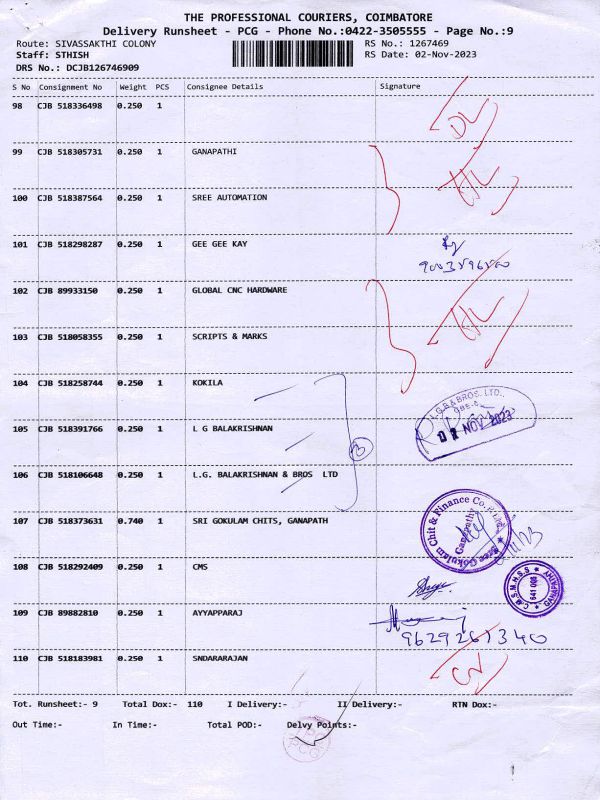 THE PROFESSIONAL COURIERS, COIMBATORE
Delivery Runsheet - PCG - Phone No.:0422-3505555 - Page No.:9
Route: SIVASSAKTHI COLONY RS No.: 1267469
Staff: STHISH RS Date: 02-Nov-2023
DRS No.: DCJB126746909
S No Consignment No Weight PCS Consignee Details Signature
98 CJB 518336498 0.250 1 DL
99 CJB 518305731 0.250 1 GANAPATHI
100 CJB 518387564 0.250 1 SREE AUTOMATION
101 CJB 518298287 0.250 1 GEE GEE KAY
102 CJB 89933150 0.250 1 GLOBAL CNC HARDWARE
103 CJB 518058355 0.250 1 SCRIPTS & MARKS
104 CJB 518258744 0.250 1 KOKILA
105 CJB 518391766 0.250 1 L G BALAKRISHNAN
L.G.B.& BROS. LTD.,
NOV 2023
3
106 CJB 518106648 0.250 1 L.G. BALAKRISHNAN & BROS LTD
107 CJB 518373631 0.740 1 SRI GOKULAM CHITS, GANAPATH
Sree Gokulam Chit & Finance Co.P.Ltd.
Ganapathy
108 CJB 518292409 0.250 1 CMS
C.M.S.M.H.S.S
641 006
109 CJB 89882810 0.250 1 AYYAPPARAJ
9629261340
110 CJB 518183981 0.250 1 SNDARARAJAN
Tot. Runsheet:- 9 Total Dox:- 110 I Delivery:- II Delivery:- RTN Dox:-
Out Time:- In Time:- Total POD:- Delvy Points:-